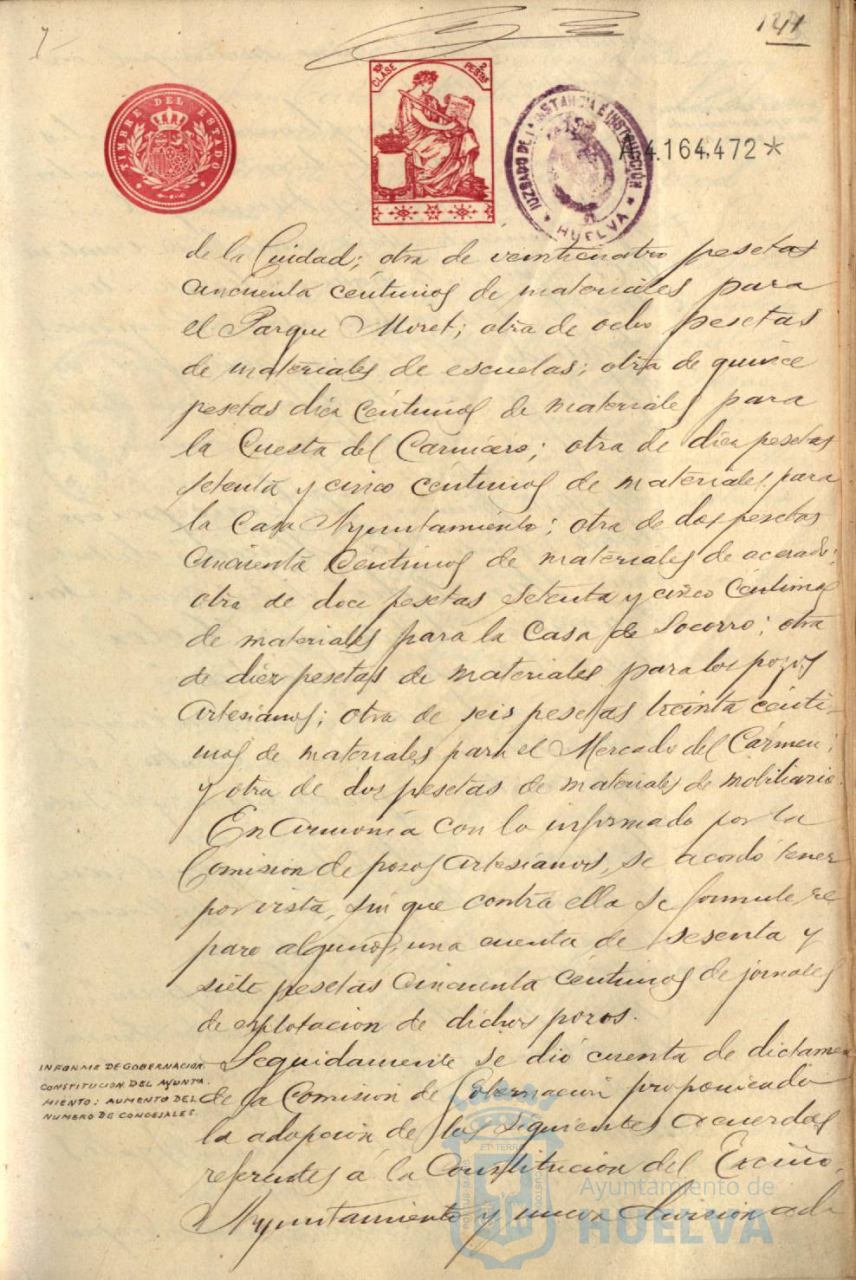 141
TIMBRE DEL ESTADO
10ª CLASE 2 PESETAS
JUZGADO DE 1ª INSTANCIA E INSTRUCCIÓN
★ HUELVA ★
A 4.164,472 *
de la Ciudad; otra de veinticuatro pesetas
cincuenta céntimos de materiales para
el Parque Moret; otra de ocho pesetas
de materiales de escuelas; otra de quince
pesetas diez céntimos de materiales para
la Cuesta del Carnicero; otra de diez pesetas
setenta y cinco céntimos de materiales para
la Casa Ayuntamiento; otra de dos pesetas
cincuenta céntimos de materiales de acerado;
otra de doce pesetas setenta y cinco céntimos
de materiales para la Casa de Socorro; otra
de diez pesetas de materiales para los pozos
Artesianos; otra de seis pesetas treinta cénti-
mos de materiales para el Mercado del Carmen;
y otra de dos pesetas de materiales de mobiliario.
En armonía con lo informado por la
Comision de pozos Artesianos, se acordó tener
por vista, sin que contra ella se formule re
paro alguno, una cuenta de sesenta y
siete pesetas cincuenta céntimos de jornales
de explotacion de dichos pozos.
INFORME DE GOBERNACION.
CONSTITUCION DEL AYUNTA-
MIENTO: AUMENTO DEL
NUMERO DE CONCEJALES.
Seguidamente se dió cuenta de dictamen
de la Comision de Gobernacion proponiendo
la adopcion de los siguientes acuerdos
referentes á la Constitucion del Excmo.
Ayuntamiento y nueva division ad
Ayuntamiento de
HUELVA